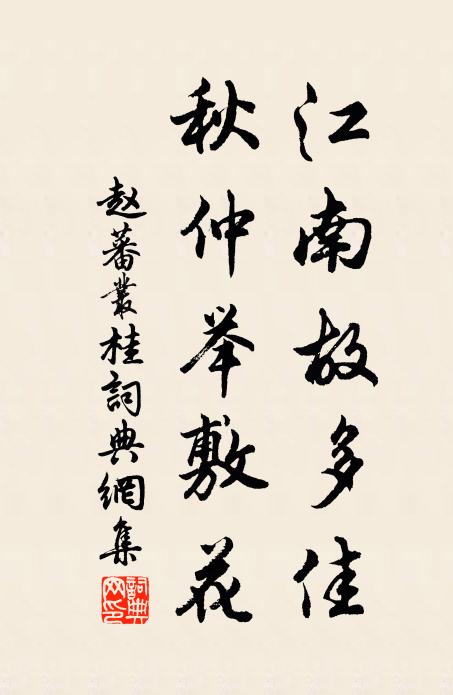 江南故多佳
秋仲举敷花
赵蕃叢桂詞典網集
詞典網印